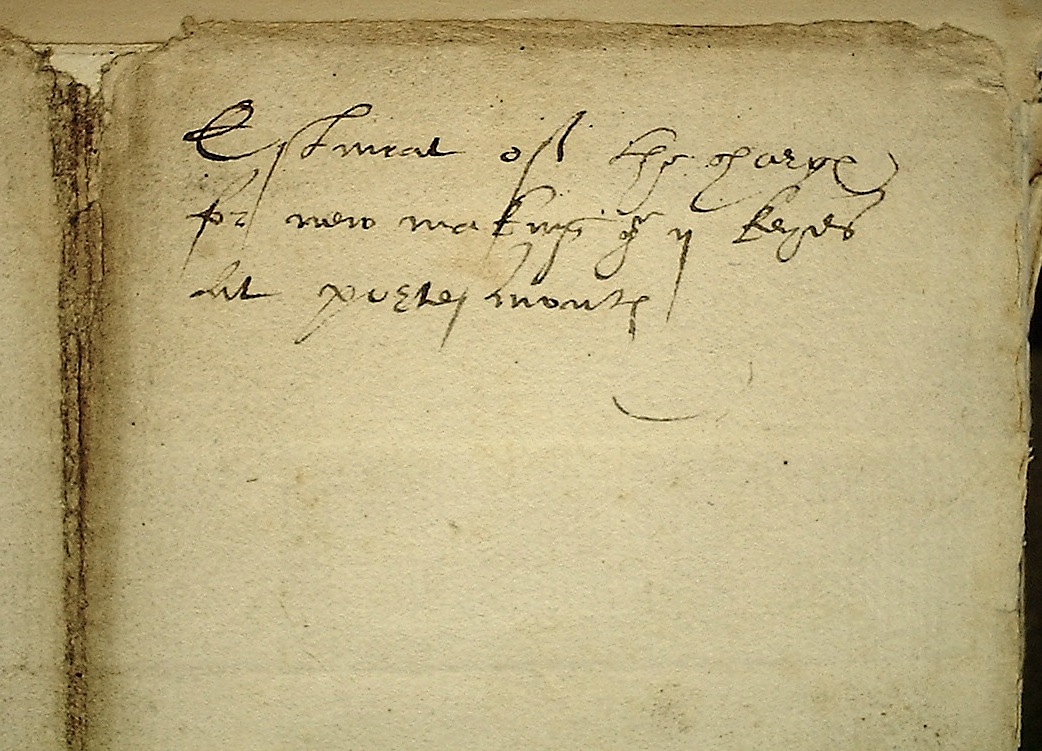 Estimat of the charge
for new making of ij keyes
at portesmouth